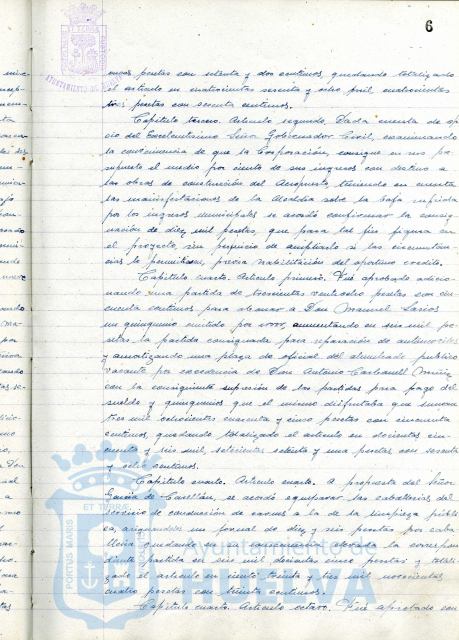 6
AYUNTAMIENTO DE
nientas pesetas con setenta y dos centimos, quedando totalizado
el articulo en cuatrocientas sesenta y ocho mil cuatrocientas
tres pesetas con sesenta centimos.
Capitulo tercero. Articulo segundo. Dada cuenta de ofi
cio del Excelentisimo Señor Gobernador Civil, examinando
la conveniencia de que la Corporación, consigne en su pre
supuesto el medio por ciento de sus ingresos con destino a
las obras de construcción del Aeropuerto, teniendo en cuenta
las manifestaciones de la Alcaldia sobre la baja sufrida
por los ingresos municipales se acordó confirmar la consig
nación de diez mil pesetas, que para tal fin figura en
el proyecto, sin perjuicio de ampliarlo si las circunstan
cias lo permitieran, previa habilitación del oportuno credito.
Capitulo cuarto. Articulo primero. Fué aprobado adicio
nando una partida de trescientas veintiocho pesetas con cin
cuenta centimos para abonar a Don Manuel
un quinquenio omitido por error, aumentando en seis mil pe
setas la partida consignada para reparación de automoviles
y amortizando una plaza de oficial del alumbrado publico
vacante por excedencia de Don Antonio Carbonell Muñiz
con la consiguiente supresión de las partidas para pago del
sueldo y quinquenios que el mismo disfrutaba que suman
tres mil ochocientas cuarenta y cinco pesetas con cincuenta
centimos, quedando totalizado el articulo en doscientas cin
cuenta y seis mil, setecientas setenta y una pesetas con sesenta
y ocho centimos.
Capitulo cuarto. Articulo cuarto. A propuesta del Señor
Garcia de Castellón, se acordó equiparar las caballerias del
servicio de conducción de carnes a la de la limpieza públi
ca, asignandoles un jornal de diez y seis pesetas por caba
lleria quedando en su consecuencia elevada la correspon
diente partida en seis mil doscientas cinco pesetas y totali
zado el articulo en ciento treinta y tres mil novecientas
cuatro pesetas con treinta centimos.
Capitulo cuarto. Articulo octavo. Fué aprobado con
PORTUS MARIS
ET TERRAE
Ayuntamiento de
HUELVA